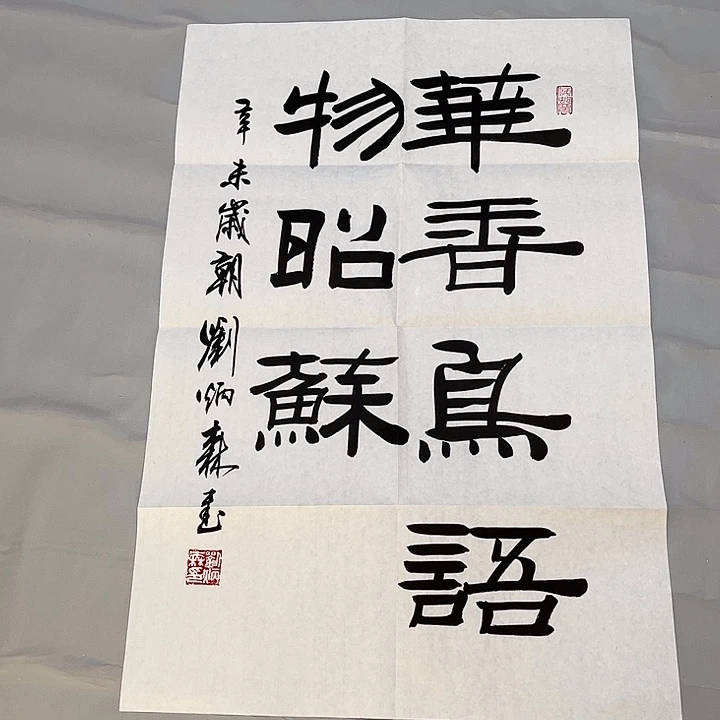 華香鳥語
物昭蘇
辛未歲朝劉炳森書